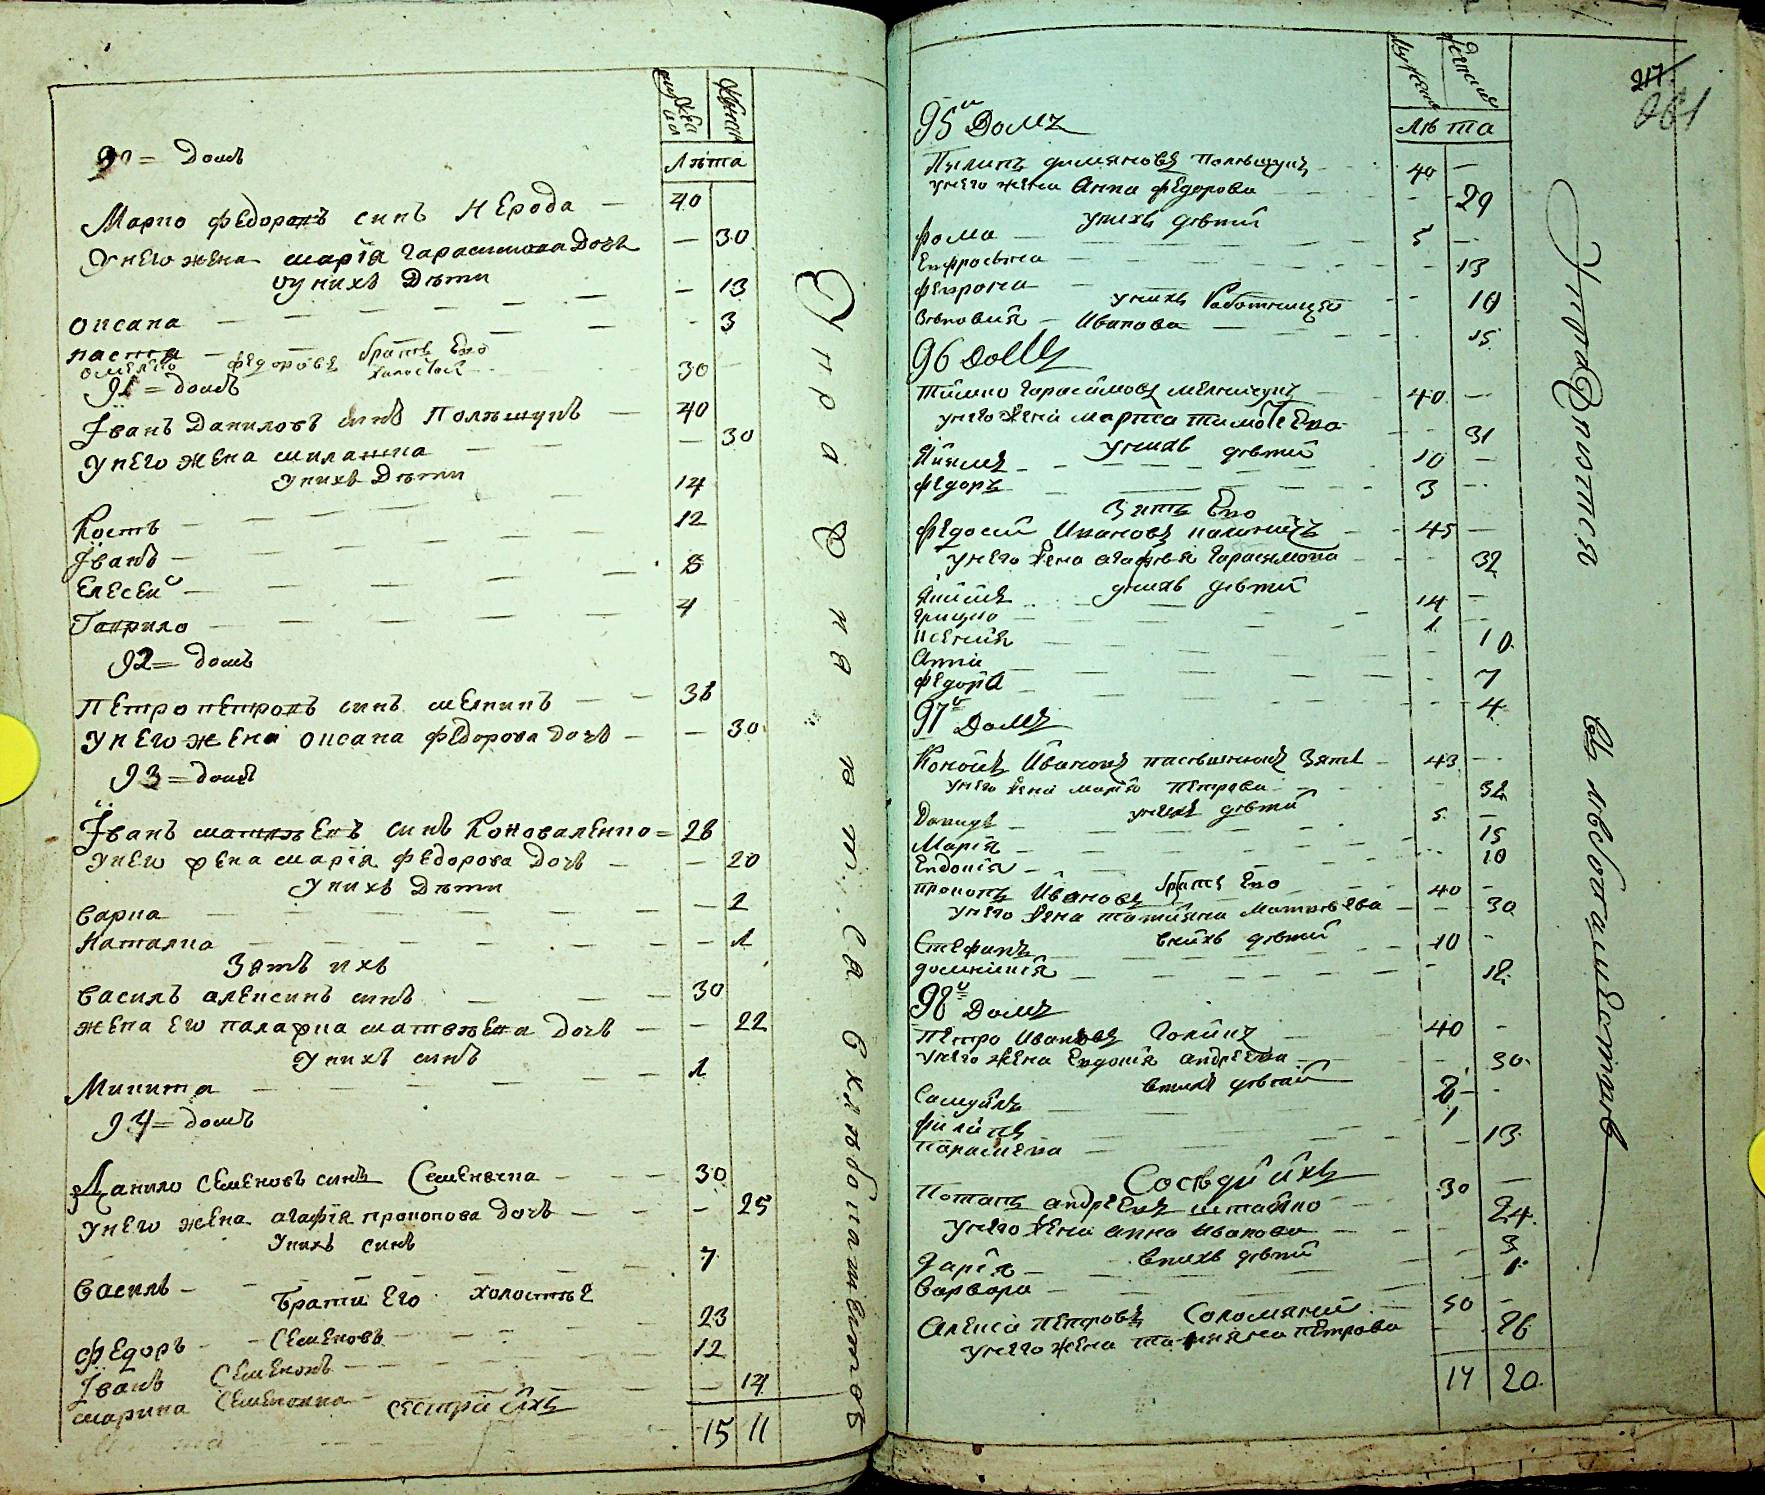 90 = Домъ
Лѣта
Марко Федоровъ синъ Нерода — 40
У него жена марїя гарасимова Дочь — 30
оу нихъ Дѣти
оксана — 13
настя — 3
омелко федоровъ братъ Его холостой 30
91 = домъ
Їванъ Даниловъ синъ Полѣщукъ — 40
У него жена миланка — 30
У нихъ Дѣти
Кость — 14
Їванъ — 12
Елесей — 8
Гаврило — 4
92 = домъ
Петро петровъ синъ мелникъ — 36
У него жена оксана Федорова дочь — 30
93 = домъ
Їванъ матвѣевъ синъ Коноваленко = 28
У него жена марїя Федорова Дочь — 20
У нихъ Дѣти
Варка — 2
Наталка — 1
Зять ихъ
Василь алексинъ синъ — 30
жена его палажка матвѣева дочь — 22
У нихъ синъ
Микита — 1
94 = домъ
Данило Семеновъ синъ Семенача — 30
У него жена агафїя прокопова Дочь — 25
У нихъ синъ
Василь — 7
Брати Его холостые
Федоръ — Семеновъ — 23
Їванъ Семеновъ — 12
марина Семеновна — сестра ихъ 14
15 11
Упражняются в хлѣбопашествѣ
217
261
95й Домъ
Лѣта
Пилипъ димяновъ Полѣщукъ — 40
у него жена Анна Федорова — 29
у нихъ дѣтей
Фома — 5
Евфросина — 13
Феврона — 10
у нихъ Работница
Зѣновия — Иванова — 15
96 Домъ
Тимко Гарасимовъ мелничукъ — 40
у него жена марта тимофѣева — 31
у нихъ дѣтей
Якимъ — 10
Федоръ — 3
Зять Его
Федосий Ивановъ — 45
у него жена агафия Гарасимова — 32
у нихъ дѣтей
Якимъ — 14
Грицко — 1
Ксения — 10
Анна — 7
Федора — 4
97й Домъ
Кононъ Ивановъ Зять — 43
у него жена мария Петрова — 32
у нихъ дѣтей
Давидъ — 5
Мария — 15
Евдокия — 10
прокопъ Ивановъ братъ Его — 40
у него жена татияна Матвѣева — 30
в нихъ дѣтей
Стефанъ — 10
домникия — 12
98й Домъ
Петро Ивановъ Голикъ — 40
у него жена Евдокия андреева — 30
в нихъ дѣтей
Самуйлъ — 2
Филипъ — 1
параскева — 13
Сосѣди ихъ
Потапъ андреевъ — 30
у него жена анна иванова — 24
в нихъ дѣтей
Дария — 3
варвара — 1
Алекса петровъ Соломяний — 50
у него жена татияна петрова — 26
14 20
Упражняются въ хлѣбопашествѣ